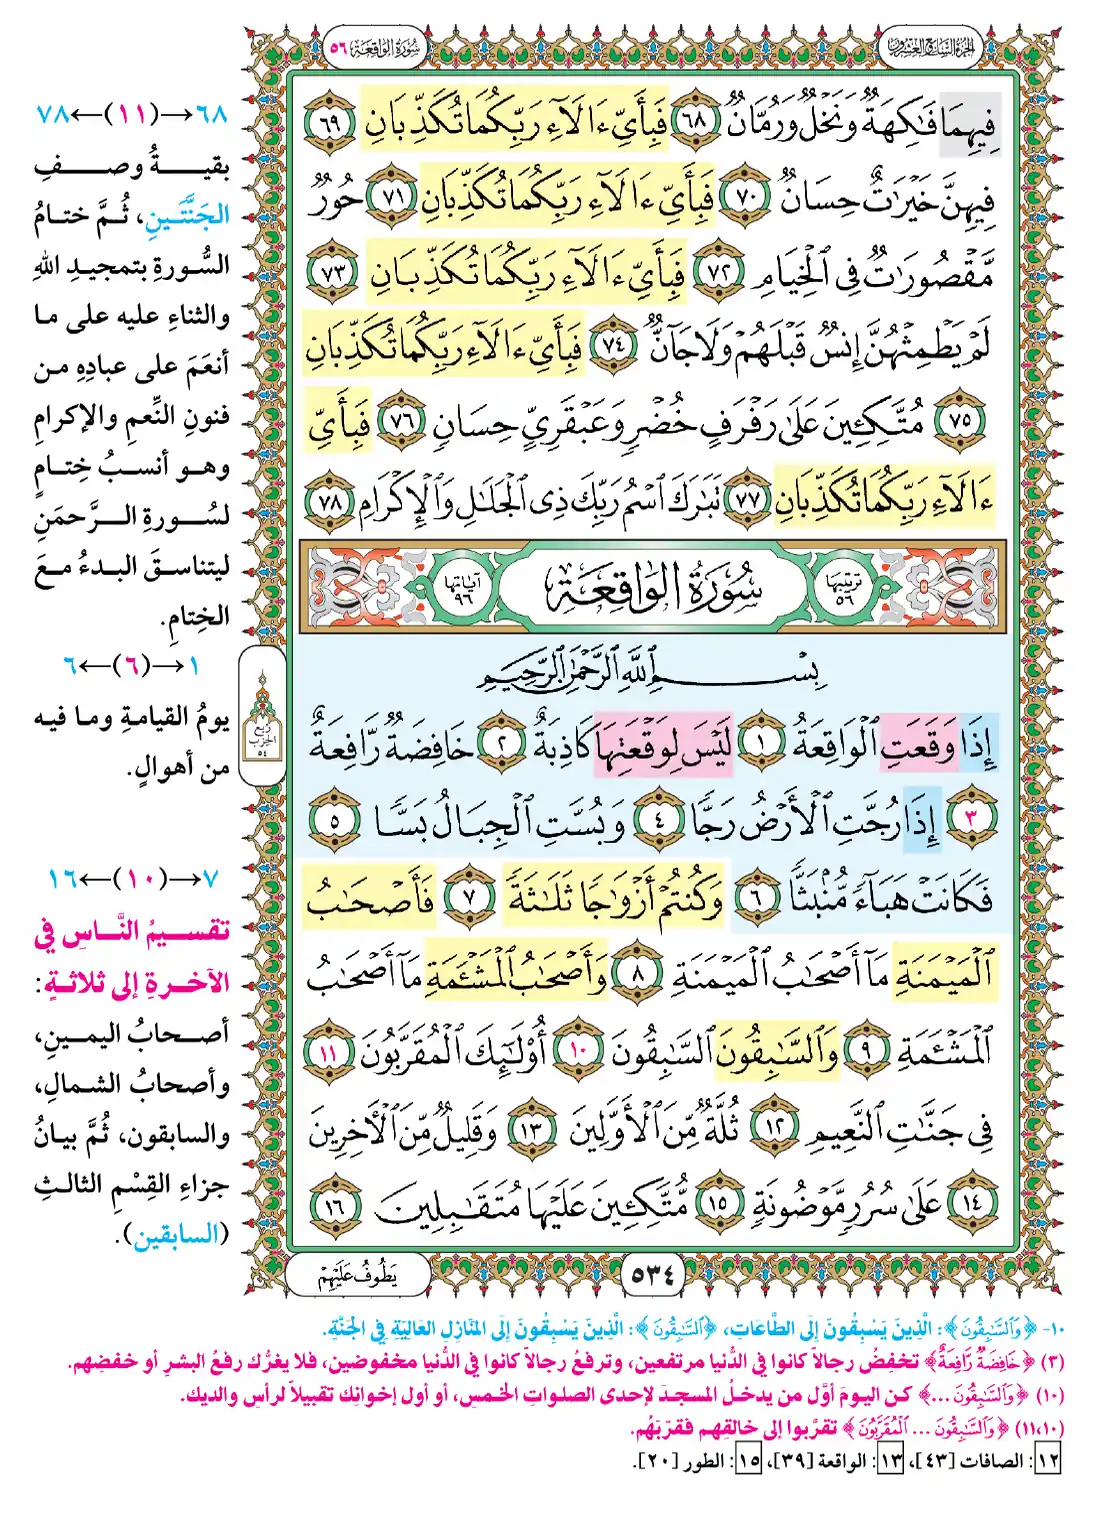 الجزء السابع والعشرون
سُورَةُ الوَاقِعَة ٥٦
فِيهِمَا فَٰكِهَةٌ وَنَخْلٌ وَرُمَّانٌ ٦٨ فَبِأَيِّ ءَالَآءِ رَبِّكُمَا تُكَذِّبَانِ ٦٩
فِيهِنَّ خَيْرَٰتٌ حِسَانٌ ٧٠ فَبِأَيِّ ءَالَآءِ رَبِّكُمَا تُكَذِّبَانِ ٧١ حُورٌ
مَّقْصُورَٰتٌ فِي ٱلْخِيَامِ ٧٢ فَبِأَيِّ ءَالَآءِ رَبِّكُمَا تُكَذِّبَانِ ٧٣
لَمْ يَطْمِثْهُنَّ إِنسٌ قَبْلَهُمْ وَلَا جَآنٌّ ٧٤ فَبِأَيِّ ءَالَآءِ رَبِّكُمَا تُكَذِّبَانِ
٧٥ مُتَّكِـِٔينَ عَلَىٰ رَفْرَفٍ خُضْرٍ وَعَبْقَرِيٍّ حِسَانٍ ٧٦ فَبِأَيِّ
ءَالَآءِ رَبِّكُمَا تُكَذِّبَانِ ٧٧ تَبَٰرَكَ ٱسْمُ رَبِّكَ ذِي ٱلْجَلَٰلِ وَٱلْإِكْرَامِ ٧٨
ترتيبها ٥٦
سُورَةُ الوَاقِعَة
آياتها ٩٦
بِسْمِ ٱللَّهِ ٱلرَّحْمَٰنِ ٱلرَّحِيمِ
إِذَا وَقَعَتِ ٱلْوَاقِعَةُ ١ لَيْسَ لِوَقْعَتِهَا كَاذِبَةٌ ٢ خَافِضَةٌ رَّافِعَةٌ
٣ إِذَا رُجَّتِ ٱلْأَرْضُ رَجًّا ٤ وَبُسَّتِ ٱلْجِبَالُ بَسًّا ٥
فَكَانَتْ هَبَآءً مُّنۢبَثًّا ٦ وَكُنتُمْ أَزْوَٰجًا ثَلَٰثَةً ٧ فَأَصْحَٰبُ
ٱلْمَيْمَنَةِ مَآ أَصْحَٰبُ ٱلْمَيْمَنَةِ ٨ وَأَصْحَٰبُ ٱلْمَشْـَٔمَةِ مَآ أَصْحَٰبُ
ٱلْمَشْـَٔمَةِ ٩ وَٱلسَّٰبِقُونَ ٱلسَّٰبِقُونَ ١٠ أُو۟لَٰٓئِكَ ٱلْمُقَرَّبُونَ ١١
فِي جَنَّٰتِ ٱلنَّعِيمِ ١٢ ثُلَّةٌ مِّنَ ٱلْأَوَّلِينَ ١٣ وَقَلِيلٌ مِّنَ ٱلْءَاخِرِينَ
١٤ عَلَىٰ سُرُرٍ مَّوْضُونَةٍ ١٥ مُّتَّكِـِٔينَ عَلَيْهَا مُتَقَٰبِلِينَ ١٦
٥٣٤
يَطُوفُ عَلَيْهِمْ
٦٨→(١١)←٧٨
بقيةُ وصفِ
الجَنَّتَينِ، ثُمَّ ختامُ
السُّورةِ بتمجيدِ اللهِ
والثناءِ عليه على ما
أنعَمَ على عبادِهِ من
فنونِ النِّعمِ والإكرامِ
وهو أنسبُ خِتامٍ
لسُورةِ الرَّحمَنِ
ليتناسقَ البدءُ معَ
الخِتامِ.
١→(٦)←٦
يومُ القيامةِ وما فيه
من أهوالٍ.
ربع الحزب ٥٤
٧→(١٠)←١٦
تقسيمُ النَّاسِ في
الآخرةِ إلى ثلاثةٍ:
أصحابُ اليمينِ،
وأصحابُ الشمالِ،
والسابقون، ثُمَّ بيانُ
جزاءِ القِسْمِ الثالثِ
(السابقين).
١٠- ﴿وَٱلسَّٰبِقُونَ﴾: الَّذِينَ يَسْبِقُونَ إِلَى الطَّاعَاتِ، ﴿ٱلسَّٰبِقُونَ﴾: الَّذِينَ يَسْبِقُونَ إِلَى المَنَازِلِ العَالِيَةِ فِي الجَنَّةِ.
(٣) ﴿خَافِضَةٌ رَّافِعَةٌ﴾ تخفِضُ رجالاً كانوا في الدُّنيا مرتفعين، وترفعُ رجالاً كانوا في الدُّنيا مخفوضين، فلا يغرُّك رفعُ البشرِ أو خفضِهم.
(١٠) ﴿وَٱلسَّٰبِقُونَ ...﴾ كن اليومَ أوَّل من يدخلُ المسجدَ لإحدى الصلواتِ الخمسِ، أو أول إخوانِك تقبيلاً لرأسِ والديك.
(١١،١٠) ﴿وَٱلسَّٰبِقُونَ ... ٱلْمُقَرَّبُونَ﴾ تقرَّبوا إلى خالقِهم فقرّبَهُم.
١٢: الصافات [٤٣]، ١٣: الواقعة [٣٩]، ١٥: الطور [٢٠].